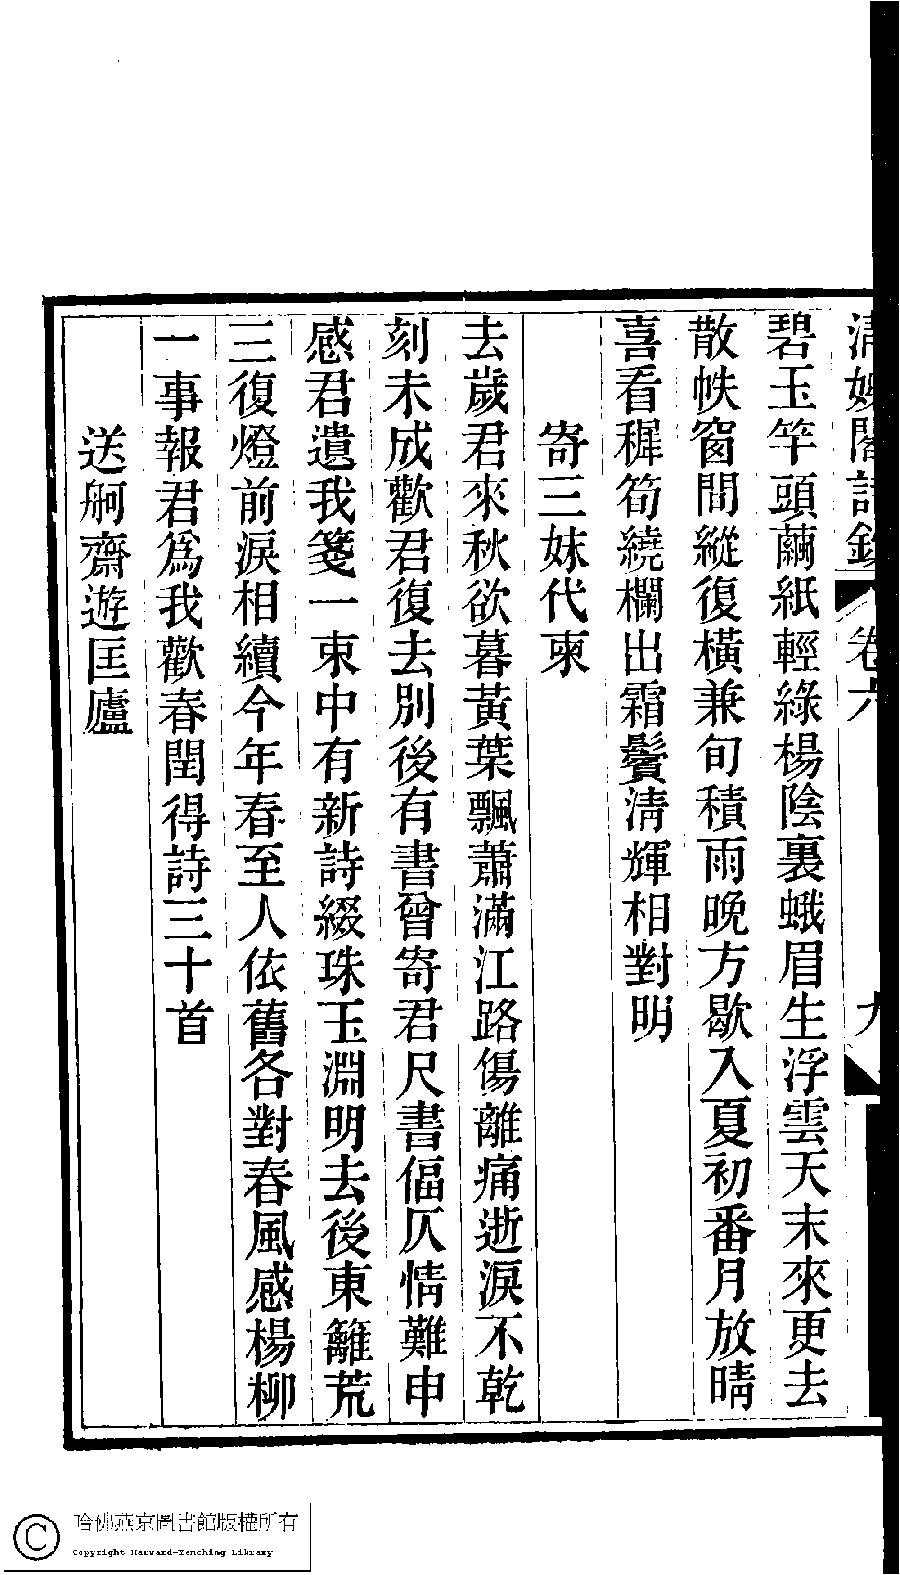 清娛閣詩鈔 卷六 九
碧玉竿頭繭紙輕綠楊陰裏蛾眉生浮雲天末來更去
散帙窗間縱復橫兼旬積雨晚方歇入夏初番月放晴
喜看穉筍繞欄出霜鬢清輝相對明
寄三妹代柬
去歲君來秋欲暮黃葉飄蕭滿江路傷離痛逝淚不乾
刻未成歡君復去別後有書曾寄君尺書偪仄情難申
感君遺我箋一束中有新詩綴珠玉淵明去後東籬荒
三復燈前淚相續今年春至人依舊各對春風感楊柳
一事報君爲我歡春閨得詩三十首
送舸齋遊匡廬
哈佛燕京圖書館版權所有
Copyright Harvard-Yenching Library